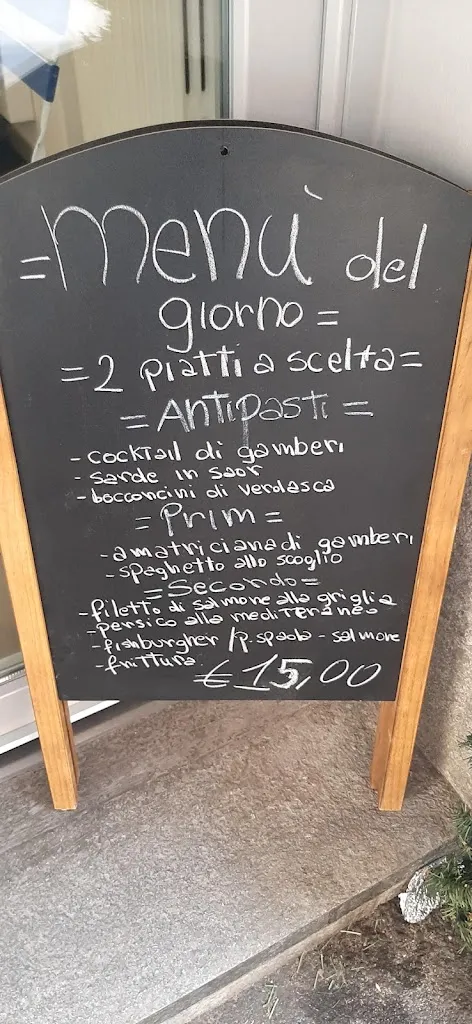 = Menù del
giorno =
= 2 piatti a scelta =
= Antipasti =
- cocktail di gamberi
- sarde in saor
- bocconcini di verdasca
= Prim =
- amatriciana di gamberi
- spaghetto allo scoglio
= Secondo =
- filetto di salmone alla griglia
- persico alla mediterraneo
- fishburgher / P. spada - salmone
- frittura
€ 15,00